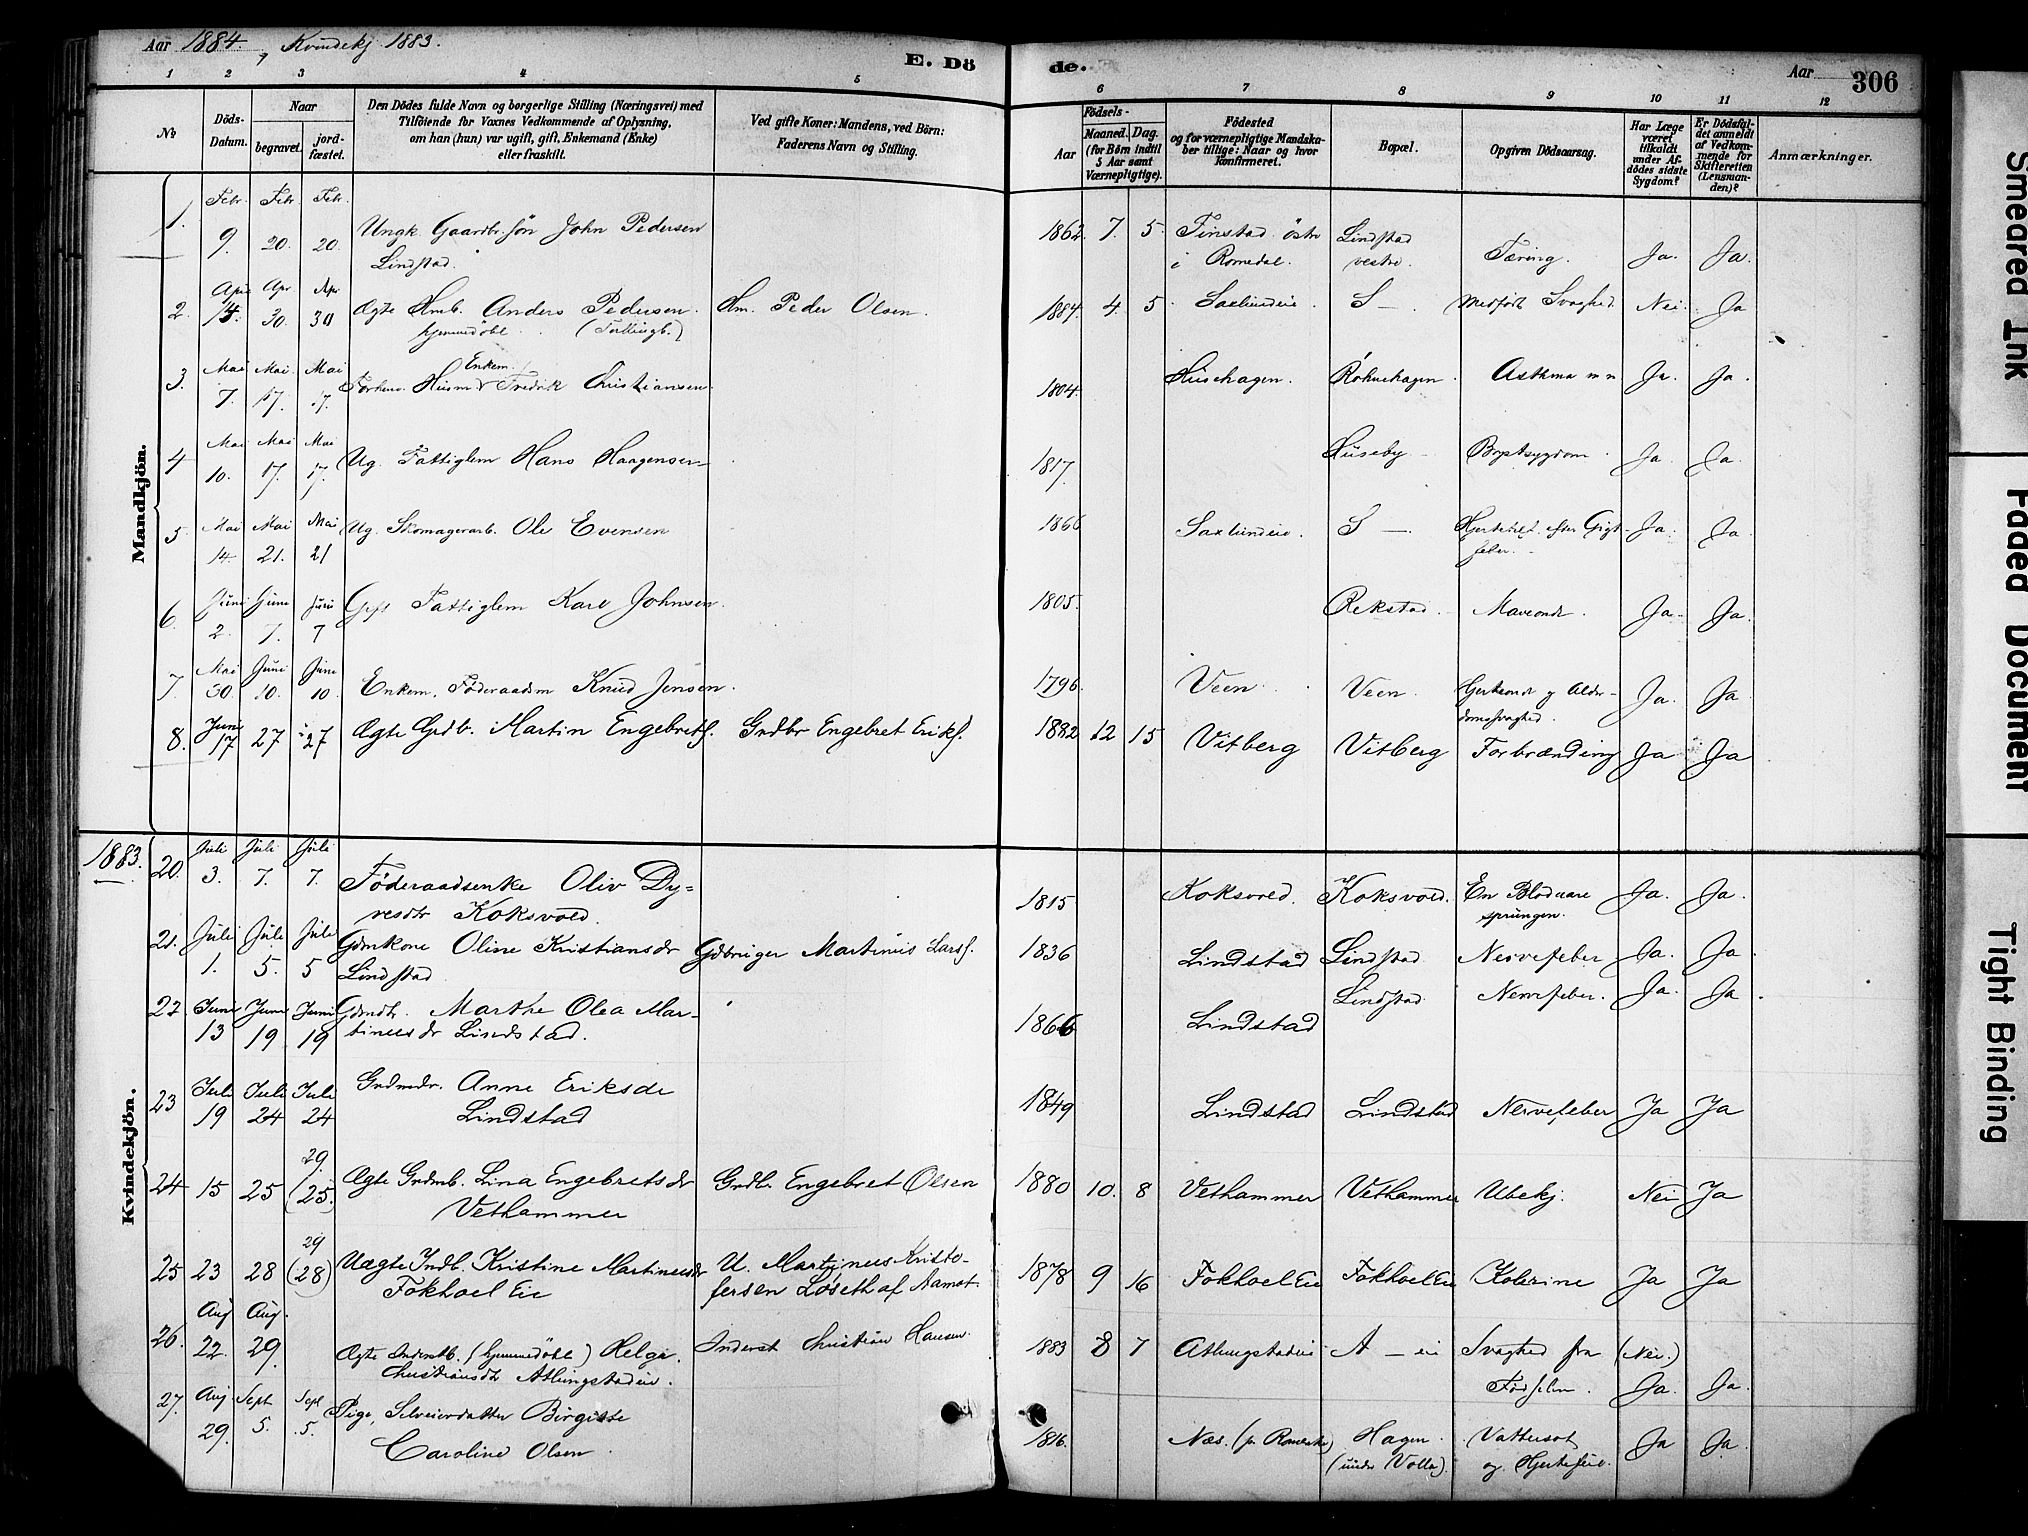 Aar 1884, Kvindekj. 1883.
E. Dö
de.
Aar
306
1 2 3 4 5 6 7 8 9 10 11 12
No
Döds-Datum.
Naar
begravet.
jordfæstet.
Den Dödes fulde Navn og borgerlige Stilling (Næringsvei) med
Tilföiende for Voxnes Vedkommende af Oplysning,
om han (hun) var ugift, gift, Enkemand (Enke)
eller fraskilt.
Ved gifte Koner: Mandens, ved Börn:
Faderens Navn og Stilling.
Födsels-
Aar
Maaned. Dag.
(for Börn indtil
5 Aar samt
Værnepligtige).
Födested
og for værnepligtige Mandska-
ber tillige: Naar og hvor
konfirmeret.
Bopæl.
Opgiven Dödsaarsag.
Har Læge
været
tilkaldt
under Af-
dödes sidste
Sygdom?
Er Dödsfal-
det anmeldt
af Vedkom-
mende for
Skifteretten
(Lensman-
den)?
Anmærkninger.
Mandkjön.
1. Febr. 9. Febr. 20. Febr. 20. Ungk. Gaardbr.søn John Pedersen Lindstad. 1862. 7. 5. Finstad östre i Romedal. Lindstad vestre. Tæring. Ja. Ja.
2. Apr. Apr. 30. Apr 30 Ægte Hmb. Anders Pedersen. hjemmedöbt. (Tvillingb.) Hm. Peder Olsen. 1884. 4. 5. Saxlundeie. S — . Medfødt Svaghed. Nei. Ja
3. Mai 7. Mai. 17. Mai 17. Forhenv. Husmd Enkem. Fredrik Christiansen. 1804. Husehagen. Röhnehagen. Asthma m m Ja. Ja.
4 Mai 10. Mai 17. Mai 17. Ug. Fattiglem Hans Haagensen 1817. Huseby Brystsygdom. Ja. Ja.
5. Mai 14. Mai 21. Mai 21 Ug. Skomagerarb. Ole Evensen 1866 Saxlundeie. S — . Hjertefeil efter Gigtfeber. Ja. Ja.
6. Juni 2. Juni 7. Juni 7 Gift Fattiglem Kare Johnsen. 1805. Rekstad. Maveondt. Ja. Ja.
7. Mai 30. Juni 10. Juni 10. Enkem. Föderaadsm Knud Jensen. 1796. Veen. Veen. Hjerteondt og Alderdomssvaghed. Ja. Ja
8. Juni 17 27 27 Ægte Grdb. Martin Engebrets. Grdbr Engebret Eriks. 1882 12 15 Vitberg Vitberg Forbrænding Ja Ja
1883.
Kvindekjön.
20. Juli 3. Juli 7. Juli 7. Föderaadsenke Oliv Dyresdtr Koksvold. 1815 Koksvold. Koksvold. En Blodaare sprungen. Ja. Ja.
21. Juli 1. Juli 5. Juli 5 Gdmkone Oline Kristiansdr Lindstad Gdbruger Martinus Larss. 1836 Lindstad Lindstad Nervefeber Ja. Ja.
22. Juni 13 Juni 19 Juni 19 Gdmdtr. Marthe Olea Martinusdr Lindstad. 1866 Lindstad Lindstad Nervefeber. Ja. Ja
23 Juli 19 Juli 24 Juli 24 Grdmdr. Anne Eriksdr Lindstad 1849 Lindstad Lindstad Nervefeber Ja Ja
24 15 25 29. (25.) Ægte Grdmb. Lina Engebretsdr Vethammer Grdbr Engebret Olsen 1880 10. 8 Vethammer Vethammer Ubekj. Nei Ja
25 23 28 29 (28) Uægte Indb. Kristine Martinusdr Fokhoel Eie U. Martinus Kristofersen Löseth af Aamot 1878 9 16 Fokhoel Eie Fokhoel Eie Kolerine Ja Ja
26. Aug 22. Aug. 29. Ægte Inderstb. (hjemmedöbt) Helga Christiansdtr Atlungstadeie. Inderst Christian Hansen. 1883 8 7 Atlungstadeie A — eie Svaghed fra Födselen. (Nei.) Ja. Ja.
27. Aug. 29. Sept 5. Sept 5. Pige, Birgitte Caroline Olsen. 1816. Næs. Hagen (under Volla). Vattersot og Hjertefeil. Ja Ja.
Smeared Ink
Faded Document
Tight Binding